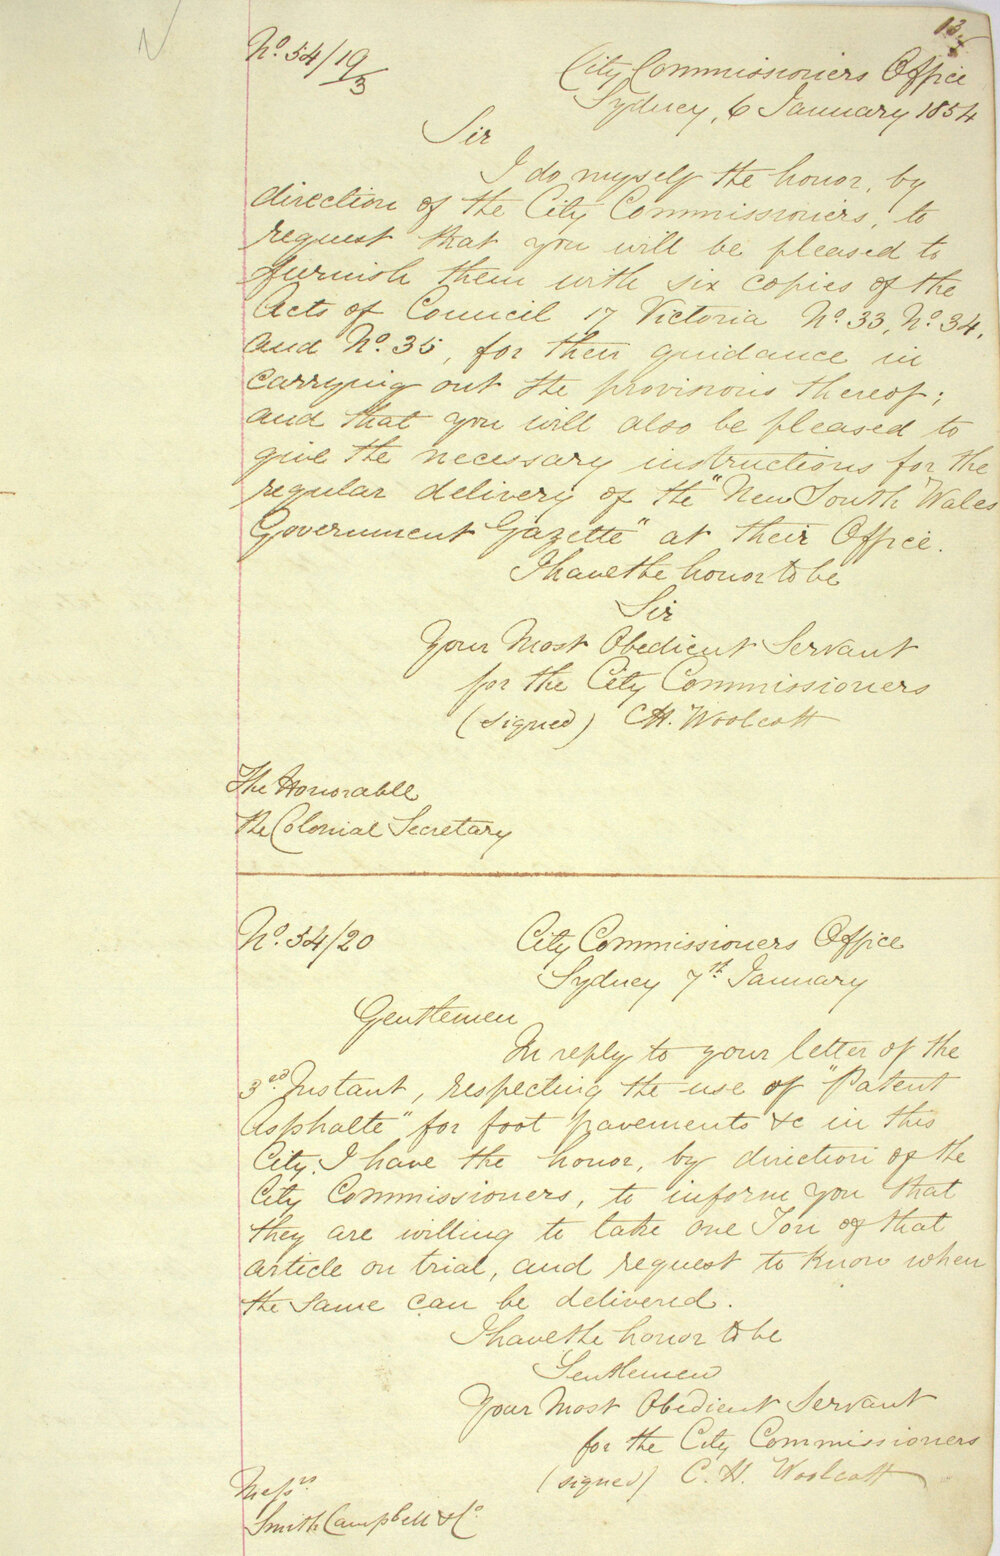 13
No. 54/19/3
City Commissioners Office
Sydney, 6 January 1854
Sir
I do myself the honor, by
direction of the City Commissioners, to
request that you will be pleased to
furnish them with six copies of the
Acts of Council 17 Victoria No. 33, No. 34,
and No. 35, for their guidance in
carrying out the provisions thereof;
and that you will also be pleased to
give the necessary instructions for the
regular delivery of the "New South Wales
Government Gazette" at their Office.
I have the honor to be
Sir
Your Most Obedient Servant
for the City Commissioners
(signed) C.H. Woolcott
The Honorable
the Colonial Secretary
No. 54/20
City Commissioners Office
Sydney 7th January
Gentlemen
In reply to your letter of the
3rd Instant, respecting the use of "Patent
Asphalte" for foot pavements &c in this
City, I have the honor, by direction of the
City Commissioners, to inform you that
they are willing to take one Ton of that
article on trial, and request to know when
the same can be delivered.
I have the honor to be
Gentlemen
Your Most Obedient Servant
for the City Commissioners
(signed) C. H. Woolcott
Messrs
Smith Campbell & Co.